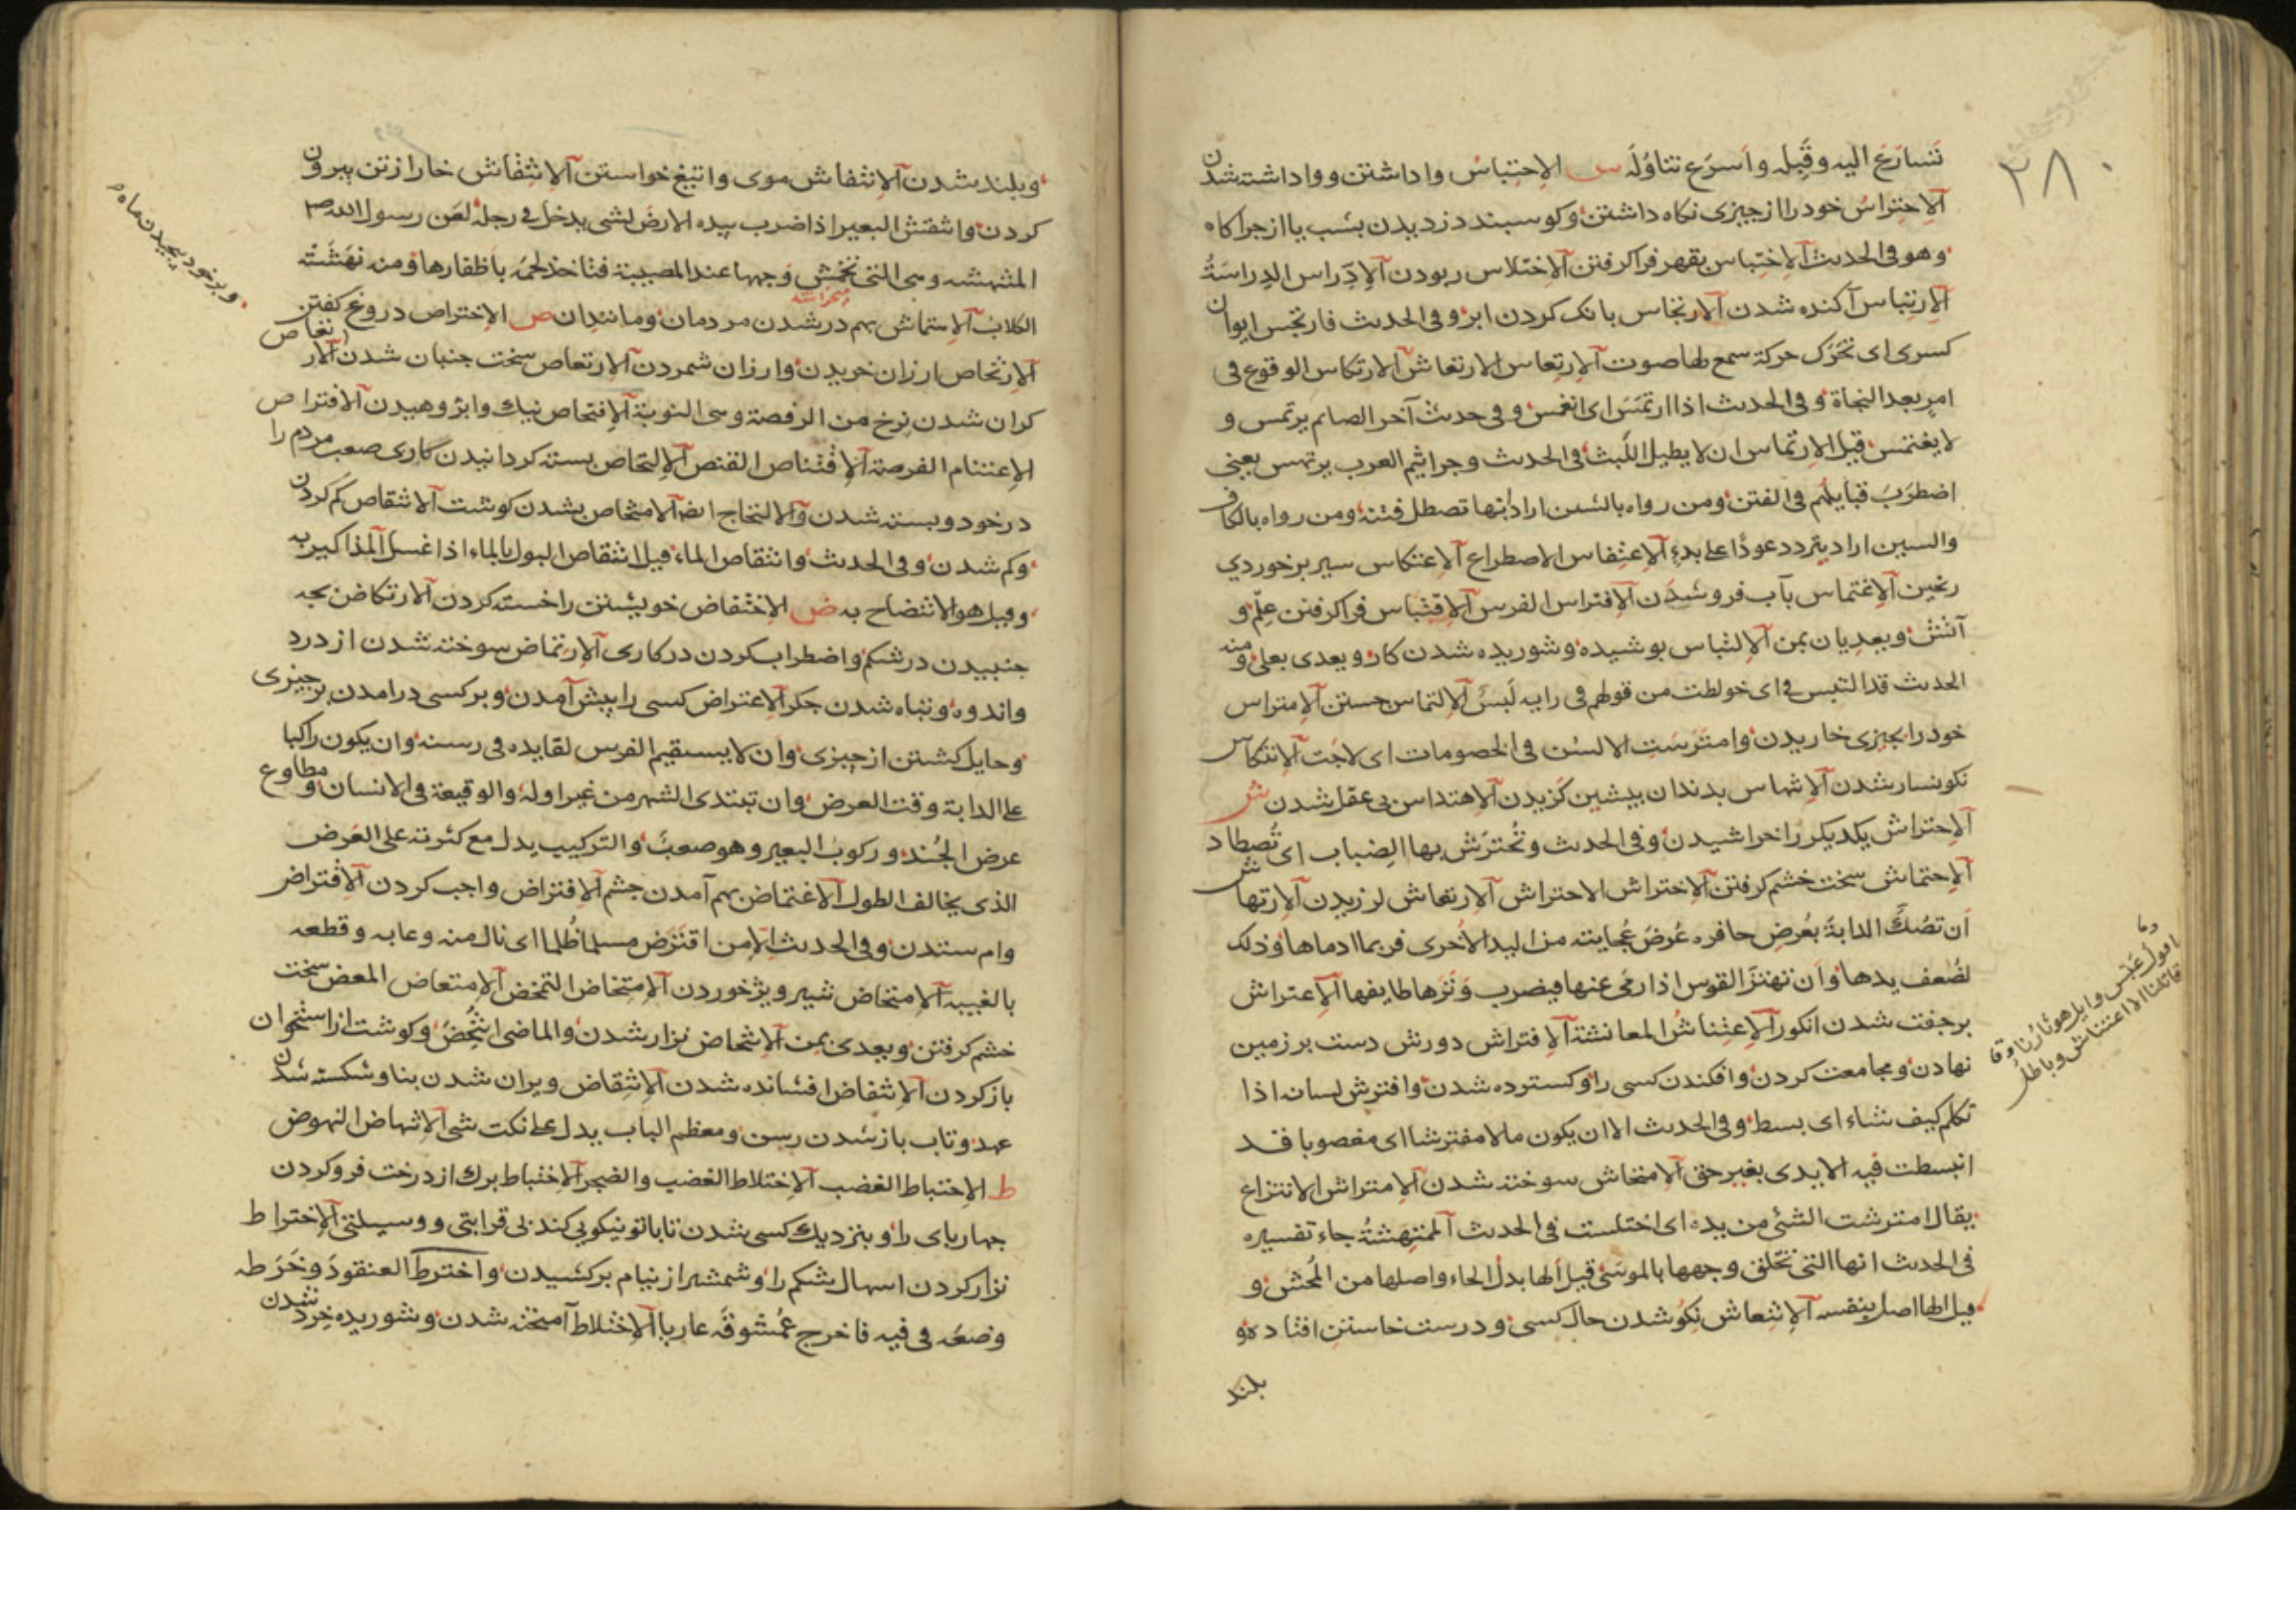 ٢٨٠
تسارع اليه وقبله واسرع تناوله س الاِحتباس واداشتن وواداشته شدن
آلاِحتراس خود را از چیزی نکاه داشتن وکوسبند دزدیدن بشب یا از چراکاه
وهو فی الحدیث آلاِختباس بقهر فراکرفتن آلاِختلاس ربودن آلاِدّراس الدِراسَةُ
آلاِرتباس آکنده شدن آلارتجاس بانک کردن ابر وفی الحدیث فارتجس ایوان
کسری ای تحَرَّک حرکة سمع لها صوت آلاِرتعاس الارتعاش آلارتکاس الوقوع فی
امرٍ بعد النجاة وفی الحدیث اذا ارتمَسَ ای انغمس وفی حدیث آخر الصائم یرتمس و
لا یغتمس قیل الارتماس ان لا یطیل اللَّبث فی الحدیث وجراثیم العرب یرتهس یعنی
اضطرَبَ قبایلهم فی الفتن ومن رواه بالشین اراد انها تصطل فتنه ومن رواه بالکاف
والسین اراد یتردد عودًا علی بدءٍ آلاِعتفاس الاصطراع آلاِعتکاس سیر برخوردی
ریختن آلاِغتماس بآب فرو شدن آلاِفتراس الفرس آلاِقتباس فراکرفتن عِلم و
آتش وبعدیان بمن آلاِلتباس بوشیده وشوریده شدن کار ویعدی بعلی ومنه
الحدیث قد التبس فی ای خولطت من قولهم فی رایه لَبسٌ آلاِلتماس جستن آلاِمتراس
خود را بچیزی خاریدن وامتَرَسَتِ الالسُن فی الخصومات ای لاجَت آلاِنتکاس
نکونسار شدن آلاِنتهاس بدندان پیشین کزیدن آلاِهتداس بی عقل شدن ش
آلاِحتراش یکدیکر را خراشیدن وفی الحدیث وتُحترَش بها الضِباب ای تُصطاد
آلاِحتماش سخت خشم کرفتن آلاِختراش الاحتراش آلاِرتعاش لرزیدن آلاِرتهاش
اَن تصُکَّ الدابةُ بعُرضِ حافره عُرضَ عُجایته من الید الاُخری فربما ادماها وذلک
لضُعف یدها وَاَن تهتزَّ القوس اذا رمی عنها فیضرب وَتَرها طایفها آلاِعتراش
برجفت شدن انکور آلاِعتناش المعانشة آلاِفتراش دورش دست بر زمین
نهادن ومجامعت کردن وافکندن کسی را وکسترده شدن وافترش لسانه اذا
تکلم کیف شاء ای بسط وفی الحدیث الا ان یکون مالا مفترشا ای مغصوبا قد
انبسطت فیه الایدی بغیر حق آلاِمتحاش سوخته شدن آلاِمتراش الانتزاع
یقال امترشت الشئ من یده ای اختلست فی الحدیث آلمنتهِشةُ جاء تفسیره
فی الحدیث انها التی تحَلق وجهها بالموسَی قیل الها بدل الحاء واصلها من المُحش و
قیل الها اصل بنفسه آلاِنتِعاش نکو شدن حال کسی ودرست خاستن افتاده و
بلند
وبلند شدن آلاِنتفاش موی وانتیغ خواستن آلاِنتِقاش خار از تن بیرون
کردن وانتقش البعیر اذا ضرب بیده الارض لشی یدخل فی رجله لعَن رسول الله ص
المنتهشه وهی التی تخمِش وجهها عند المصیبة فتاخذ لحمَه باَظفارها ومنه نهَشَتْه
الکلابُ آلاِهتماش بهم در شدن مردمان ومانندان ص الاِختراص دروغ کفتن
آلاِرتخاص ارزان خریدن وارزان شمردن آلاِرتعاص سخت جنبان شدن آلار
تفاص
کران شدن نرخ من الرفصة وهی النوبة آلاِفتحاص نیک وابژوهیدن آلافتراص
الاِغتنام الفرصة آلاِقتناص القنص آلاِلتحاص بسته کردانیدن کاری صعب مردم را
در خود وبسته شدن وآلاِلتحاج ایضا آلامتحاص بشدن کوشت آلانتقاص کم کردن
وکم شدن وفی الحدیث وانتقاص الماء قیل انتقاص البول بالماء اذا غسل المذاکیر به
وقیل هو الانتضاح به ض الاِختفاض خویشتن را خسته کردن آلارتکاض بچه
جنبیدن در شکم واضطراب کردن در کاری آلاِرتماض سوخته شدن از درد
واندوه وتباه شدن جکر آلاِعتراض کسی را پیش آمدن وبر کسی درامدن بر چیزی
وحایل کشتن از چیزی وان لا یستقیم الفرس لقایده فی رسنه وان یکون راکبا
علی الدابة وقت العرض وان تبتدی الشهر من غیر اوله والوقیعة فی الانسان ومطاوع
عرض الجُند ورکوب البعیر وهو صعبٌ والترکیب یدل مع کثرته علی العَرض
الذی یخالف الطول آلاغتماض بهم آمدن چشم آلاِفتراض واجب کردن آلاِقتراض
وام ستدن وفی الحدیث الاّ من اقتَرَض مسلما ظُلما ای نال منه وعابه وقطعه
بالغیبة آلاِمتخاض شیر ویژ خوردن آلاِمتِخاض التمخض آلاِمتعاض المعض سخت
خشم کرفتن ویعدی بمن آلاِنتحاض نزار شدن والماضی انتُحِضَ وکوشت از استخوان
باز کردن آلاِنتفاض افشانده شدن آلاِنتِقاض ویران شدن بنا وشکسته شدن
عهد وتاب باز شدن رسن ومعظم الباب یدل علی نکث شی آلانتهاض النهوض
ط الاِحتباط الغضب آلاِختلاط الغضب والضجر آلاِختباط برک از درخت فرو کردن
چهارپای را وبنزدیک کسی شدن تا باتو نیکویی کند بی قرابتی ووسیلتی آلاِختراط
نزار کردن اسهال شکم را وشمشیر از نیام برکشیدن واخترط العنقودَ وخَرَطه
وضعَه فی فیه فاخرج عُمشوقَه عاریا آلاِختلاط آمیخته شدن وشوریده خِرد شدن